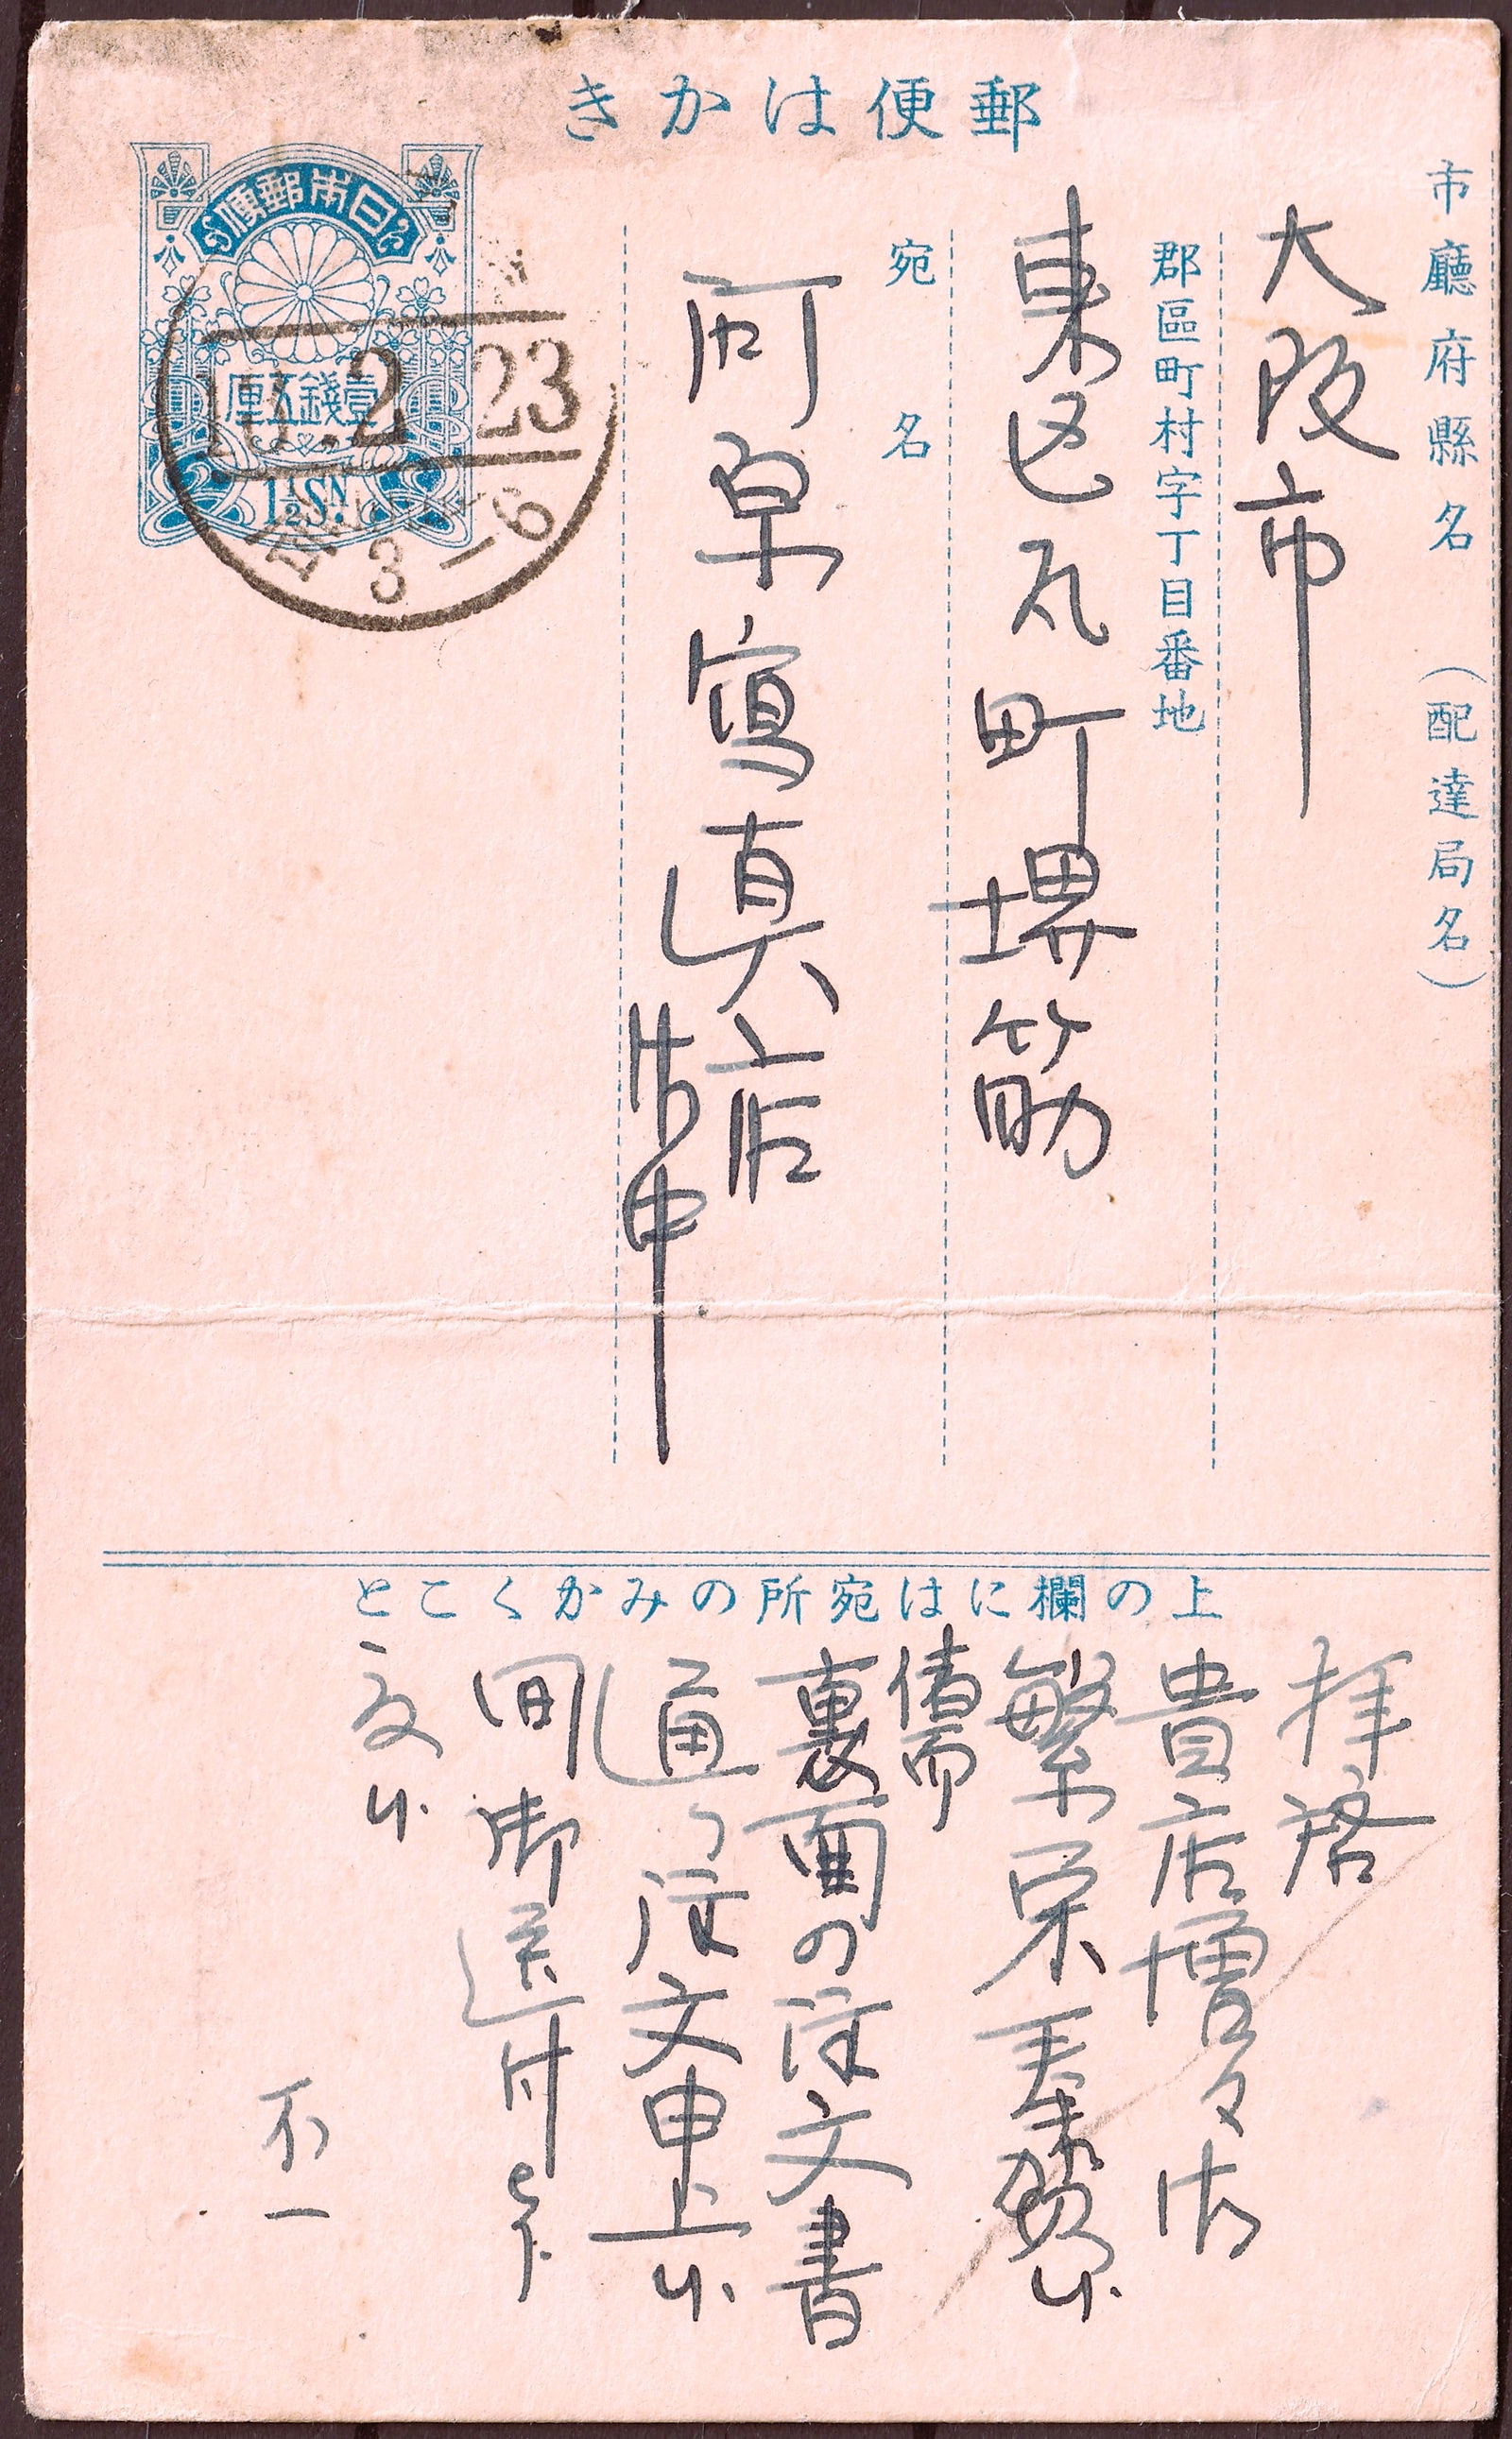 郵便はかき
市廳府縣名　（配達局名）
大阪市
郡區町村字丁目番地
東区瓦町堺筋
宛名
寫真店
御中
日本郵便
壹錢五厘
1½SN.
2 23
3-6
上の欄には宛所のみかくこと
拝啓
貴店増々御
繁栄奉賀候
偖而
裏面の注文書
通り注文申上候
間御送付
候
不一